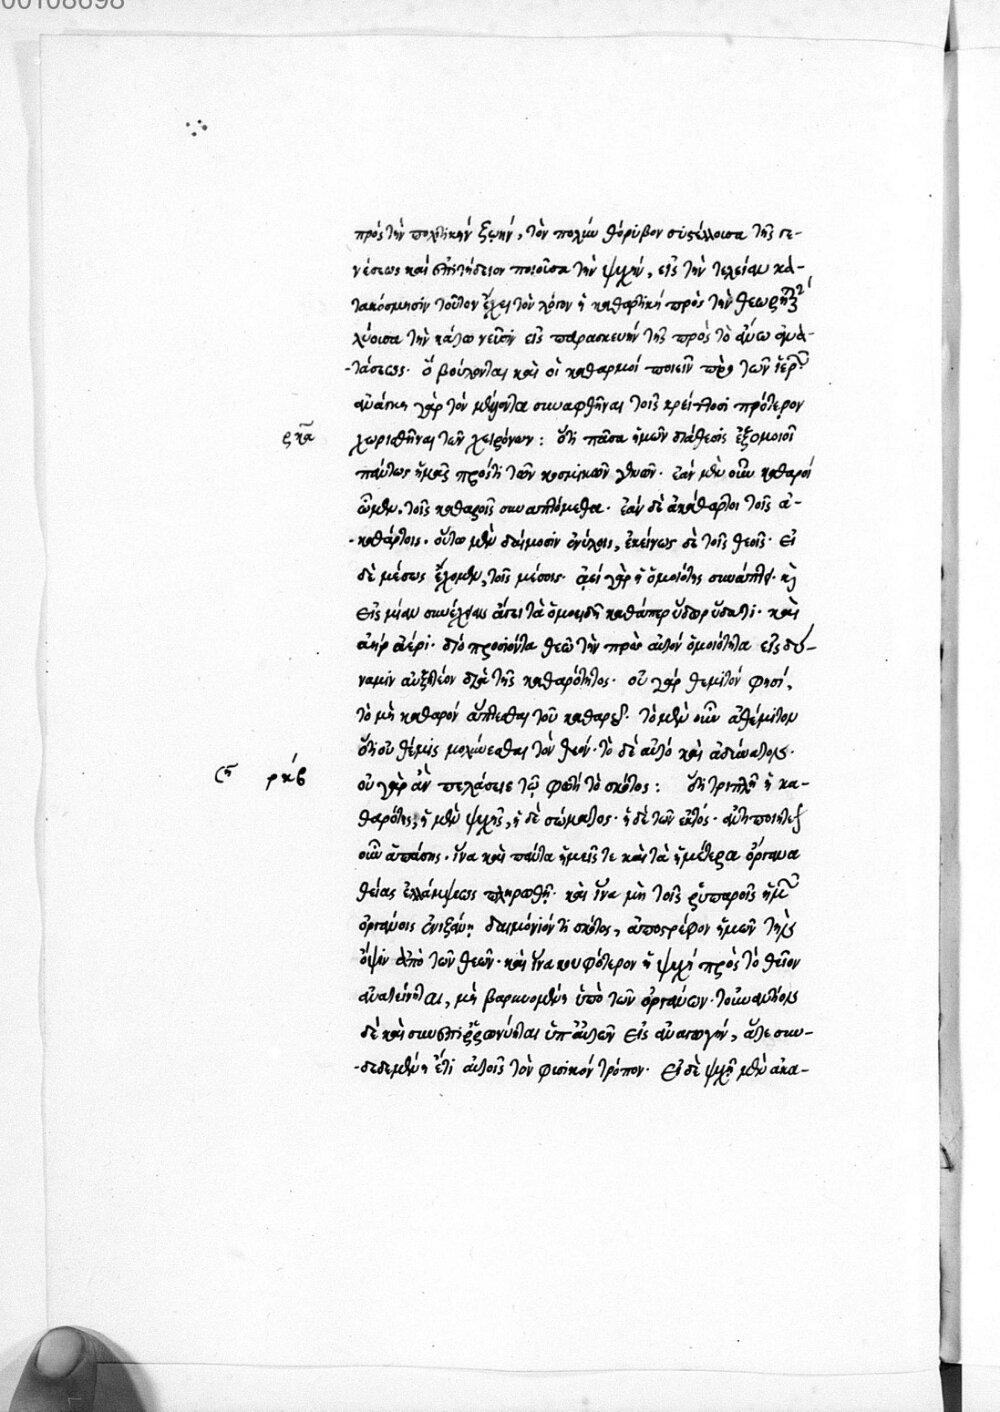 00108698
πρὸς τὴν πολιτικὴν ζωήν, τὸν πολὺν θόρυβον συστέλλουσα τῆς γε-
νέσεως καὶ ἐπιτήδειον ποιοῦσα τὴν ψυχήν, εἰς τὴν τελείαν κα-
τακόσμησιν τοῦτον ἔχει τὸν λόγον ἡ καθαρτικὴ πρὸς τὴν
λύουσα τὴν κάτω νεῦσιν εἰς παρασκευὴν τῆς πρὸς τὸ ἄνω ἀνα-
-τάσεως· ὃ βούλονται καὶ οἱ καθαρμοὶ ποιεῖν πρὸ τῶν
ἀνάγκη γὰρ τὸν μέλλοντα συναφθῆναι τοῖς κρείττοσι πρότερον
ρκα χωρισθῆναι τῶν χειρόνων: ὅτι πᾶσα ἡμῶν διάθεσις ἐξομοιοῖ
πάντως ἡμᾶς πρός τι τῶν κοσμικῶν γενῶν· ἐὰν μὲν οὖν καθαροὶ
ὦμεν, τοῖς καθαροῖς συναπτόμεθα· ἐὰν δὲ ἀκάθαρτοι τοῖς ἀ-
-καθάρτοις. οὕτω μὲν δαίμοσιν ἐνύλοις, ἐκείνως δὲ τοῖς θεοῖς· εἰ
δὲ μέσως ἔχομεν, τοῖς μέσοις· ἀεὶ γὰρ ἡ ὁμοιότης συνάπτει· κὶ
εἰς μίαν συνέλιξιν ἄγει τὰ ὁμοειδῆ καθάπερ ὕδωρ ὕδατι· καὶ
ἀὴρ ἀέρι· διὸ προσιόντα θεῷ τὴν πρὸς αὐτὸν ὁμοιότητα εἰς δύ-
ναμιν αὐξητέον διὰ τῆς καθαρότητος· οὐ γὰρ θεμιτὸν φησί,
τὸ μὴ καθαρὸν ἅπτεσθαι τοῦ καθαροῦ· τὸ μὲν οὖν ἀθέμιτον
ὅτι οὐ θέμις μολύνεσθαι τὸν θεόν· τὸ δὲ αὐτὸ καὶ ἀδύνατον·
ρκβ οὐ γὰρ ἂν πελάσειε τῷ φωτὶ τὸ σκότος: ὅτι τριπλῆ ἡ κα-
θαρότης, ἡ μὲν ψυχῆς, ἡ δὲ σώματος· ἡ δὲ τῶν ἐκτός· ἀντιποιητέον
οὖν ἁπάσης. ἵνα καὶ πάντα ἡμεῖς τε καὶ τὰ ἡμέτερα ὄργανα
θείας ἐλλάμψεως πληρωθῇ· καὶ ἵνα μὴ τοῖς ῥυπαροῖς ἡμῶν
ὀργάνοις ἐνιζάνῃ δαιμόνιόν τι σκότος, ἀποστρέφον ἡμῶν τὴν
ὄψιν ἀπὸ τῶν θεῶν· καὶ ἵνα κουφότερον ἡ ψυχὴ πρὸς τὸ θεῖον
ἀνατείνηται, μὴ βαρυνομένη ὑπὸ τῶν ὀργάνων· τοὐναντίον
δὲ καὶ συνεπιρρωννύηται ὑπ' αὐτῶν εἰς ἀναγωγήν, ἅτε συν-
-δεδεμένη ἔτι αὐτοῖς τὸν φυσικὸν τρόπον. εἰ δὲ ψυχὴ μὲν ἀκα-